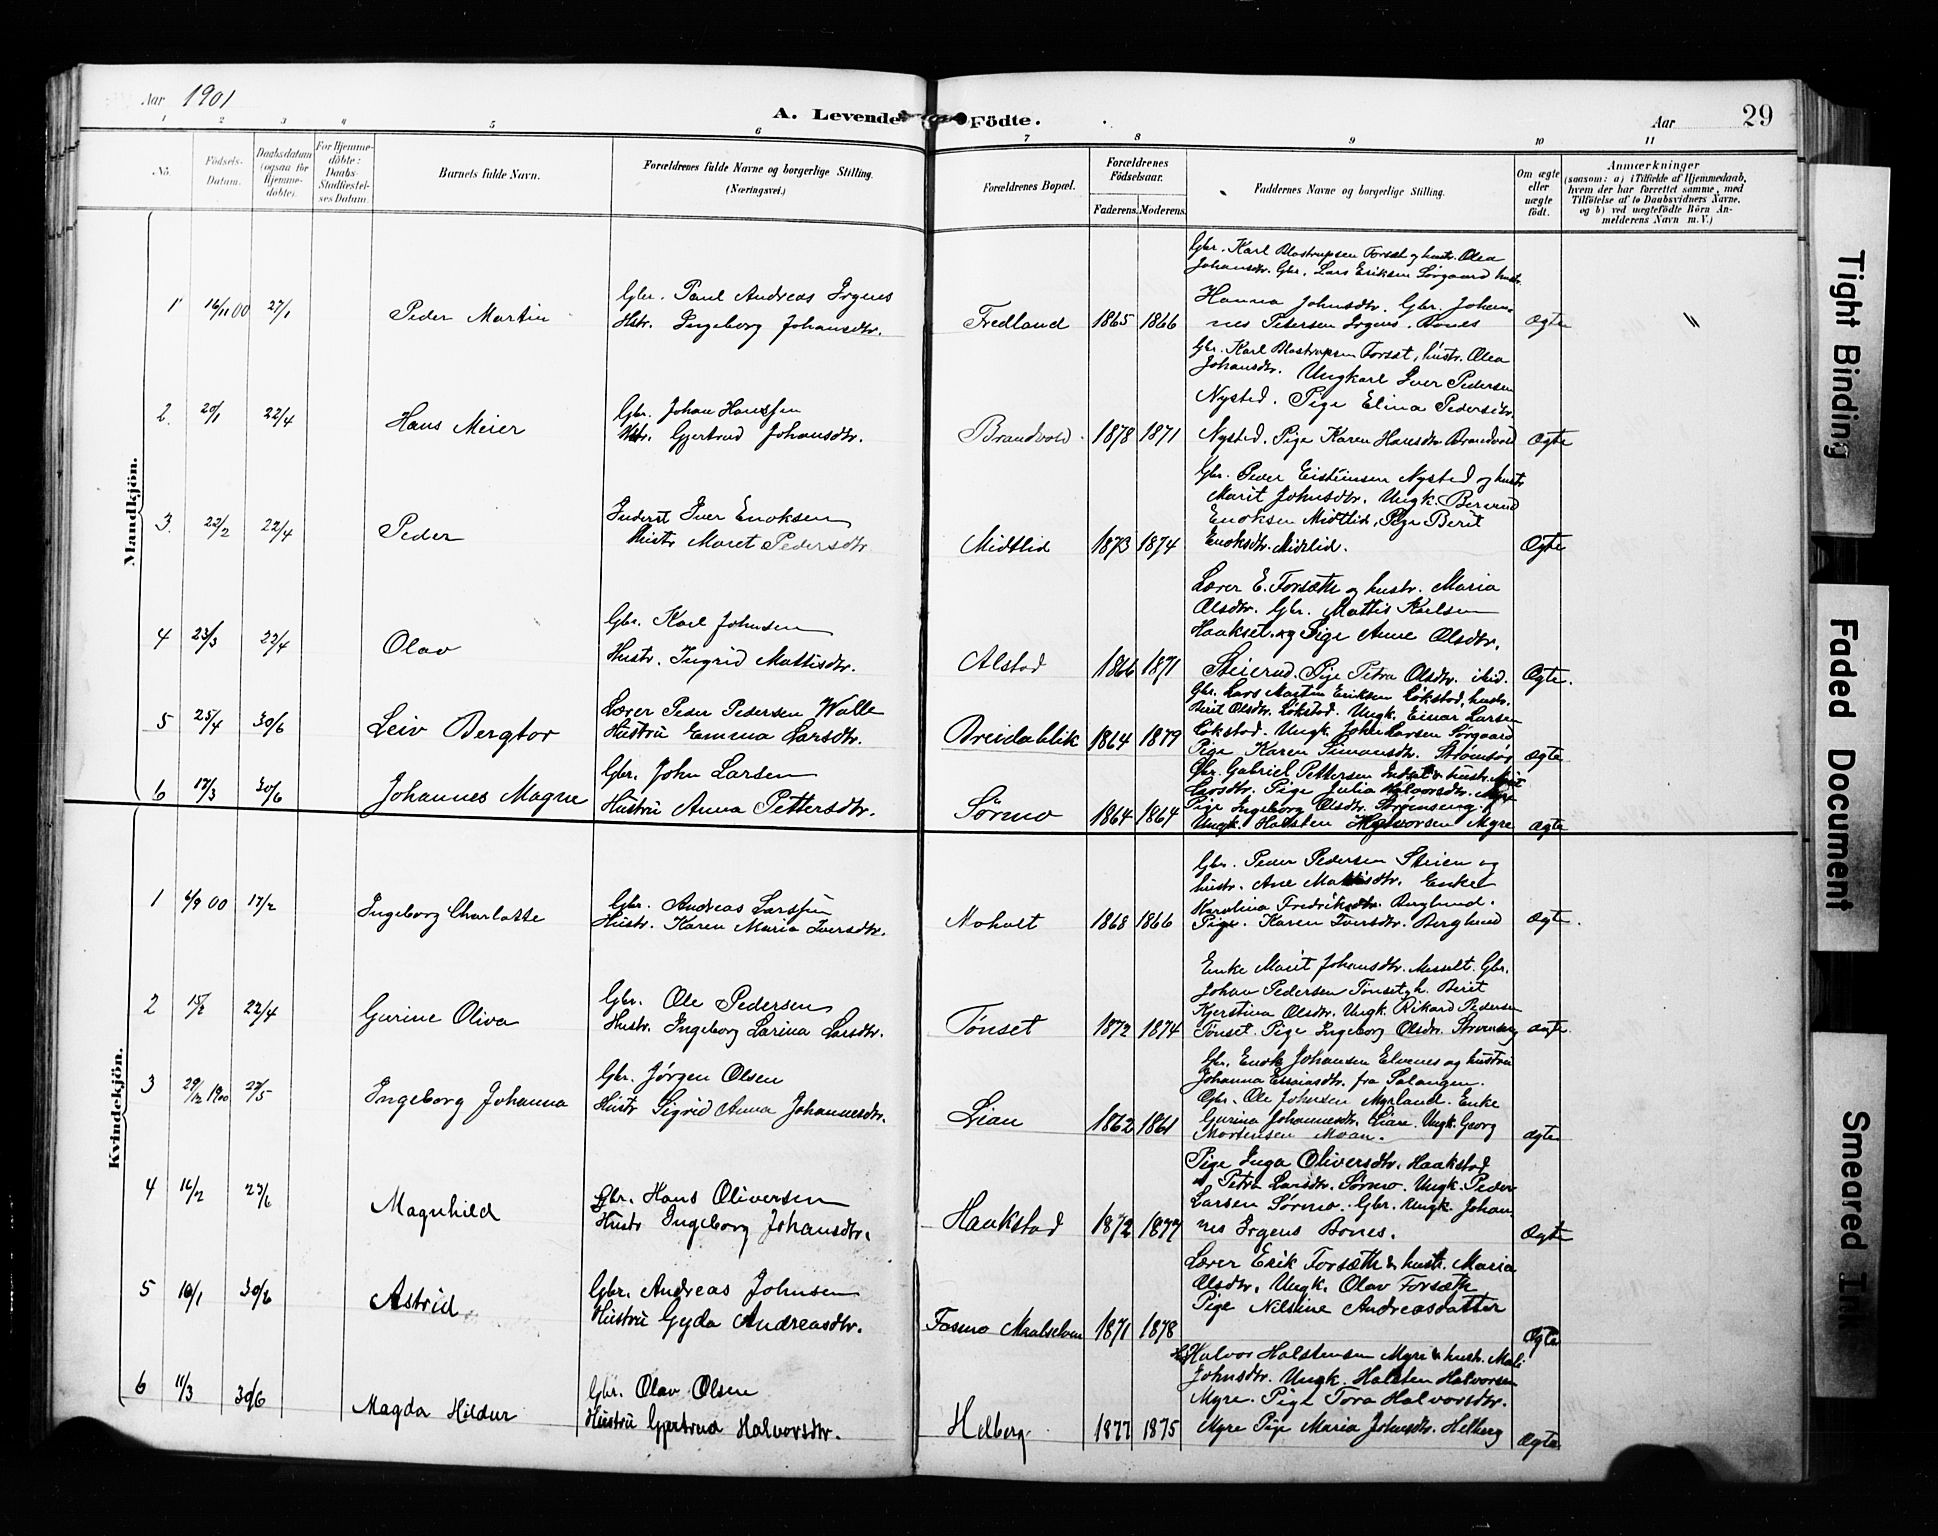 Aar 1901
A. Levende Födte.
Aar 29
1 2 3 4 5 6 7 8 9 10 11
No. Födsels-Datum. Daabsdatum (ogsaa for Hjemmedöbte). For Hjemmedöbte: Daabs-Stadfæstelses Datum. Barnets fulde Navn. Forældrenes fulde Navne og borgerlige Stilling. (Næringsvei.) Forældrenes Bopæl. Forældrenes Födselsaar. Faderens. Moderens. Faddernes Navne og borgerlige Stilling. Om ægte eller uægte födt. Anmærkninger (saasom: a) i Tilfælde af Hjemmedaab, hvem der har forrettet samme, med Tilföielse af to Daabsvidners Navne, og b) ved uægtefödte Börn Anmelderens Navn m. V.)
Mandkjön.
Gbr. Karl Blostrupsen Forset og hustr. Olea
Johansdtr. Gbr. Lars Eriksen Sørgaard hustr.
1 16/11 00 27/1 Peder Martin Gbr. Paul Andreas Irgens
Hstr. Ingeborg Johansdtr. Fredland 1865 1866 Hanna Johnsdtr. Gbr. Johan-
nes Petersen Irgens. Bones Ægte "
Gbr. Karl Blostrupsen Forset, hustr. Olea
Johansdtr. Ungkarl Iver Pedersen
Nysted. Pige Elina Pedersdtr.
2. 20/1 22/4 Hans Meier Gbr. Johan Hanssen
Hstr. Gjertrud Johansdtr. Brandvold. 1878 1871 Nysted. Pige Karen Hansdtr. Brandvold Ægte
Gbr. Peder Eisteinsen Nysted og hustr
Marit Johnsdtr. Ungk.
3. 22/2 22/4 Peder Inderst Iver Enoksen
Hustr Maret Pedersdtr Midtlid 1873 1874 Enoksen Midtlid, Pige Berit
Enoksdtr. Midtlid. Ægte
Lærer E. Forsæth og hustr. Maria
Olsdtr. Gbr. Mattis Karlsen
Haakset. og Pige Anne Olsdtr.
4 23/3 22/4 Olav Gbr. Karl Johnsen
Hustr. Ingrid Mattisdtr. Alstad 1866 1871 Steierud. Pige Petra Olsdtr. ibid. Ægte.
Gbr. Lars Martin Eriksen Løkstad, hustr.
Berit Olsdtr. Løkstad. Ungk. Einar Larsen
5 25/4 30/6 Leiv Bergtor Lærer Peder Pedersen Walle
Hustru Emma Larsdtr. Breidablik 1864 1879 Løkstad. Ungk. John Larsen Sørgaard
Pige Karen Simonsdtr. Strømsør Ægte
Gbr. Gabriel Pettersen Indset & hustr.
Larsdtr. Pige Julia Halvorsdtr. Myre
6 17/3 30/6 Johannes Magne Gbr. John Larsen
Hustru Anna Pettersdtr. Sørmo 1864 1864 Pige Ingeborg Olsdtr. Strømseng.
Ungk. Halsten Halvorsen Myre Ægte
Kvindekjön.
Gbr. Peder Pedersen Steien og
hustr. Ane Mattisdtr. Enke
1 6/9 00 17/2 Ingeborg Charlotte Gbr. Andreas Larssen
Hustr. Karen Maria Iversdtr. Moholt 1868 1866 Karolina Fredriksdtr. Berglund.
Pige. Karen Iversdtr. Berglund Ægte.
Enke Marit Johansdtr. Messelt. Gbr.
Johan Pedersen Tønset, h. Berit
2 15/2 22/4 Gurine Oliva Gbr. Ole Pedersen
Hustr. Ingeborg Larina Larsdtr. Tønset 1872 1874 Kjerstina Olsdtr. Ungk. Rikard Pedersen
Tønset. Pige Ingeborg Olsdtr. Strømseng ægte.
Gbr. Enok Johansen Elvenes og hustru
Johanna Essaiasdtr. fra Salangen.
3 29/12 1900 27/5 Ingeborg Johanna Gbr. Jørgen Olsen
Hustr Sigrid Anna Johannesdtr. Lian 1862 1861 Gbr. Ole Johnsen Myrland. Enke
Gurina Johannesdtr. Liane. Ungk. Georg
Mortensen Moan. ægte
Pige Inga Oliversdtr. Haakstad
" Petra Larsdtr. Sørmo. Ungk. Peder
4 16/2 23/6 Magnhild Gbr. Hans Oliversen
Hustr Ingeborg Johansdtr. Haakstad 1872 1877 Larsen Sørmo. Gbr. Ungk. Johan-
nes Irgens Bones. Ægte
Lærer Erik Forsæth & hustr. Maria
Olsdtr. Ungk. Olav Forsæth
5 16/1 30/6 Astrid Gbr. Andreas Johnsen
Hustru Gyda Andreasdtr. Fosmo Maalselven 1871 1878 Pige Nilsine Andreasdatter Ægte
Halvor Halstensen Myre & hustr. Mali
Johnsdtr. Ungk. Halsten Halvorsen
Myre. Pige Tora Halvorsdtr.
6 11/3 30/6 Magda Hildur Gbr. Olav Olsen
Hustru Gjertrud Halvorsdtr. Helberg. 1877 1875 Myre Pige Maria Johnsdtr. Helberg Ægte
Tight Binding
Faded Document
Smeared Ink